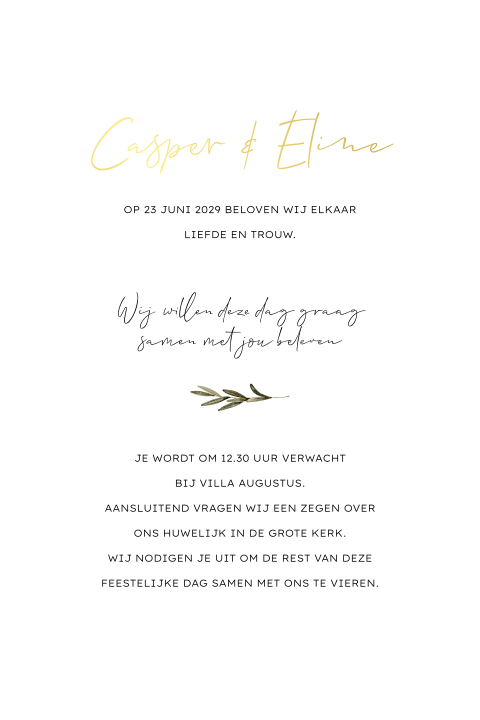 Casper & Eline
OP 23 JUNI 2029 BELOVEN WIJ ELKAAR
LIEFDE EN TROUW.
Wij willen deze dag graag
samen met jou beleven
JE WORDT OM 12.30 UUR VERWACHT
BIJ VILLA AUGUSTUS.
AANSLUITEND VRAGEN WIJ EEN ZEGEN OVER
ONS HUWELIJK IN DE GROTE KERK.
WIJ NODIGEN JE UIT OM DE REST VAN DEZE
FEESTELIJKE DAG SAMEN MET ONS TE VIEREN.